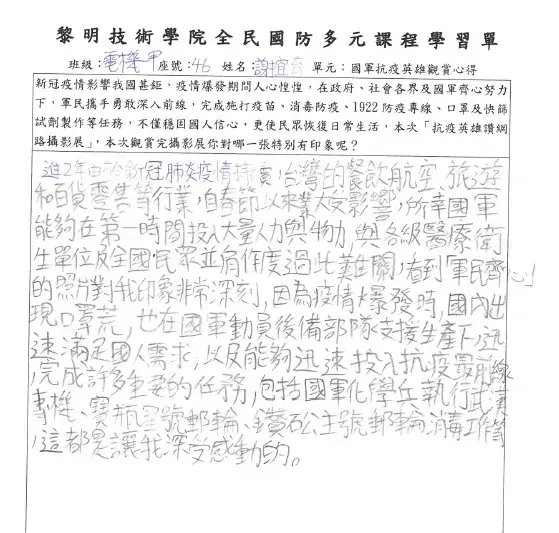 黎明技術學院全民國防多元課程學習單
班級：電機甲 座號：46 姓名： 單元：國軍抗疫英雄觀賞心得
新冠疫情影響我國甚鉅，疫情爆發期間人心惶惶，在政府、社會各界及國軍齊心努力
下，軍民攜手勇敢深入前線，完成施打疫苗、消毒防疫、1922防疫專線、口罩及快篩
試劑製作等任務，不僅穩固國人信心，更使民眾恢復日常生活，本次「抗疫英雄讚網
路攝影展」，本次觀賞完攝影展你對哪一張特別有印象呢？
近2年由於新冠肺炎疫情持續，台灣的餐飲航空、旅遊
和百貨零售等行業，自春節以來業大受影響，所幸國軍
能夠在第一時間投入大量人力與物力，與各級醫療衛
生單位及全國民眾並肩作度過此難關，看到「軍民齊心」
的照片對我印象非常深刻，因為疫情爆發時，國內出
現口罩荒，也在國軍動員後備部隊支援生產下，迅
速滿足國人需求，以及能夠迅速投入抗疫最前線
，完成許多重要的任務，包括國軍化學兵執行武漢
專機、寶瓶星號郵輪、鑽石公主號郵輪消毒工作等
，這都是讓我深受感動的。